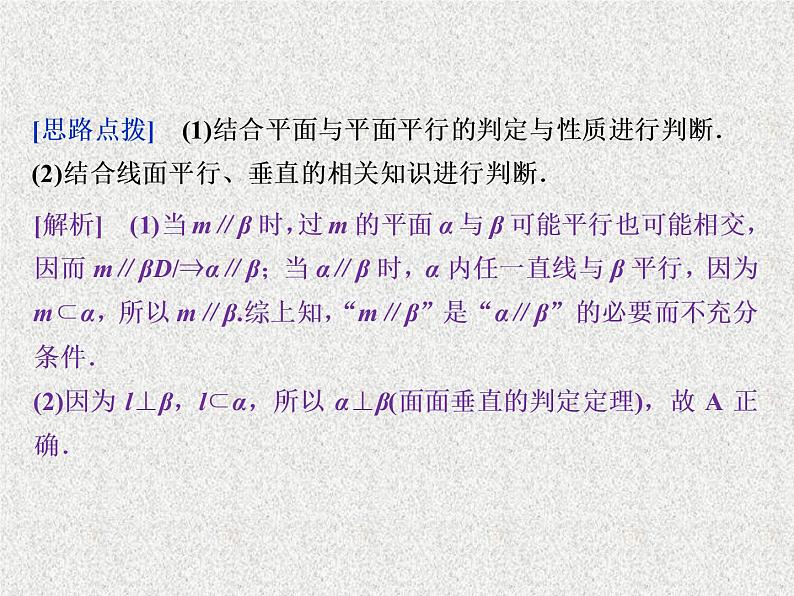 [思路点拨] (1)结合平面与平面平行的判定与性质进行判断.
(2)结合线面平行、垂直的相关知识进行判断.
[解析] (1)当 m∥β 时,过 m 的平面 α 与 β 可能平行也可能相交,
因而 m∥βD/⇒α∥β；当 α∥β 时，α 内任一直线与 β 平行，因为
m⊂α，所以 m∥β.综上知，“m∥β”是“α∥β”的必要而不充分
条件.
(2)因为 l⊥β，l⊂α，所以 α⊥β(面面垂直的判定定理)，故 A 正
确.